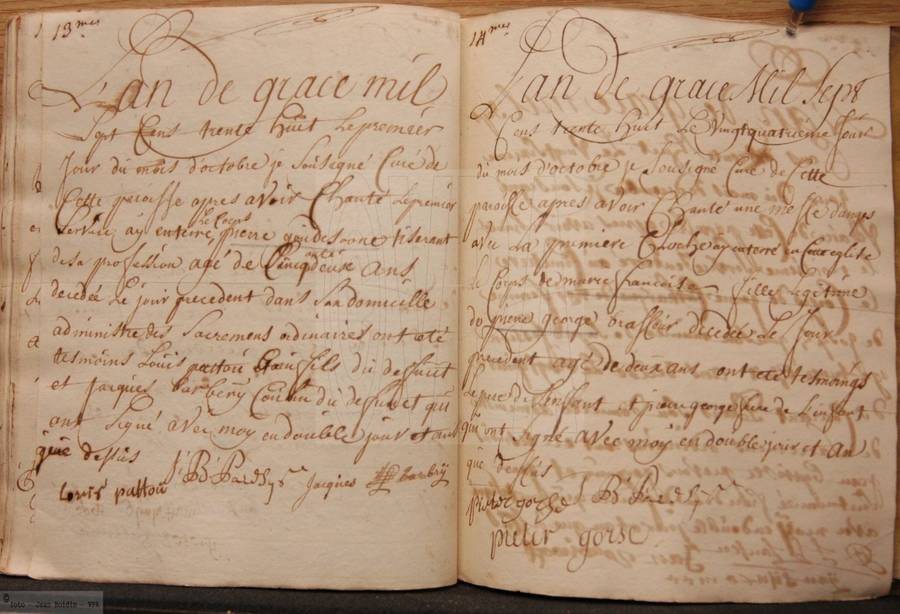 13mes
L'an de grace mil
Sept Cens trente huit le premier
Jour du mois d'octobre je Soussigné Curé de
Cette paroisse apres avoir Chanté le premier
Service ay enterré le Corps pierre tiserant
de sa profession agé de Cincq ante deux ans
decedée le jour precedent dans Son domicille
administré des Sacremens ordinaires ont eté
tesmoins Louis pattou fils du deffunct
et Jacques barbery Cousin du deffunct qui
ont Signé avec moy en double jour et an
que dessus
Louis pattou Jacques barbry
14mes
L'an de grace Mil Sept
Cens trente huit Le Vingtquatrieme Jour
du mois d'octobre je Soussigné Curé de Cette
paroisse apres avoir Chanté une messe d'anges
avec La premiere Cloche ay enterré en Cette eglise
le Corps de marie francoise fille legitime
de pierre george decedée le Jour
precedent agé de deux ans ont eté tesmoings
Le pere de L'enfant et pierre george frere de L'enfant
qui ont signé avec moy en double jour et an
que dessus
pieter gorse